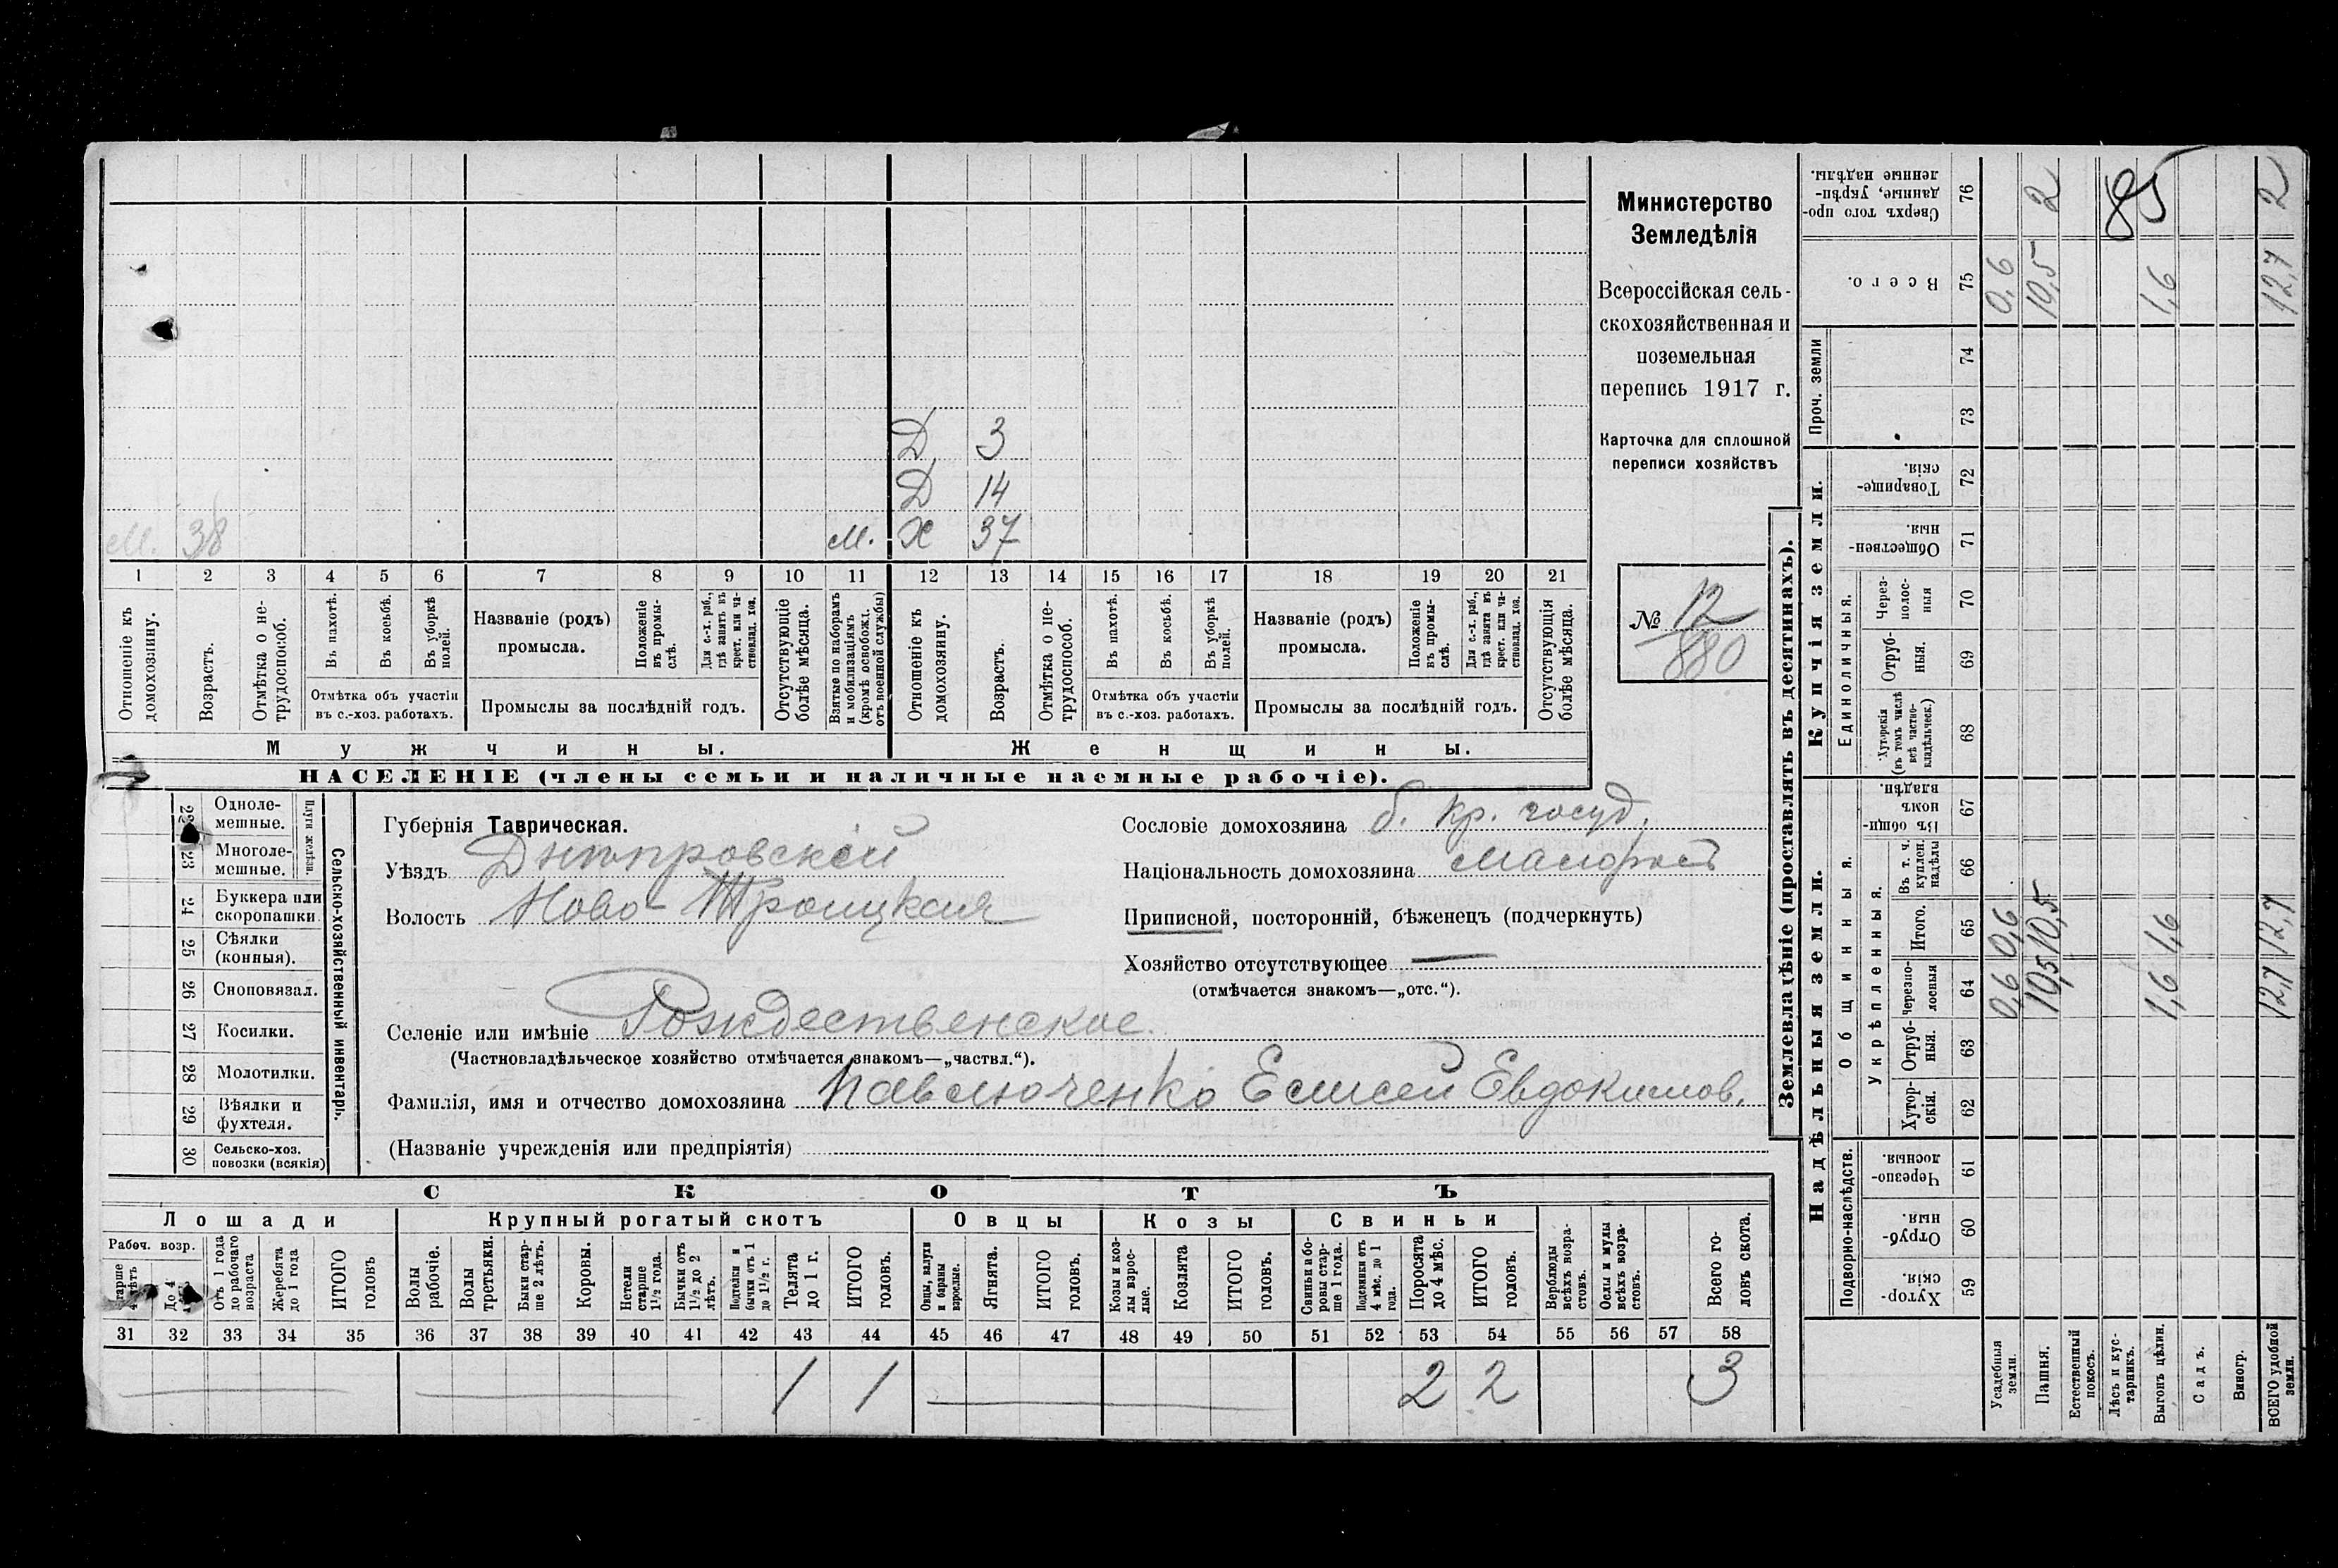 Министерство
Земледѣлія
Всероссійская сель-
скохозяйственная и
поземельная
перепись 1917 г.
Карточка для сплошной
переписи хозяйствъ
№ 12
880
Д 3
Д 14
М. 38 М. Х 37
1 2 3 4 5 6 7 8 9 10 11 12 13 14 15 16 17 18 19 20 21
Отношеніе къ домохозяину.
Возрастъ.
Отмѣтка о не-трудоспособ.
Въ пахотѣ.
Въ косьбѣ.
Въ уборкѣ полей.
Отмѣтка объ участіи
въ с.-хоз. работахъ.
Названіе (родъ)
промысла.
Положеніе въ промы-слѣ.
Для с.-х. раб., гдѣ занятъ въ крест. или ча-стновлад. хоз.
Промыслы за послѣдній годъ.
Отсутствующіе болѣе мѣсяца.
Взятые по наборамъ и мобилизаціямъ (кромѣ освобожд. отъ военной службы)
Отношеніе къ домохозяину.
Возрастъ.
Отмѣтка о не-трудоспособ.
Въ пахотѣ.
Въ косьбѣ.
Въ уборкѣ полей.
Отмѣтка объ участіи
въ с.-хоз. работахъ.
Названіе (родъ)
промысла.
Положеніе въ промы-слѣ.
Для с.-х. раб., гдѣ занята въ крест. или ча-стновлад. хоз.
Промыслы за послѣдній годъ.
Отсутствующія болѣе мѣсяца.
Мужчины. Женщины.
НАСЕЛЕНІЕ (члены семьи и наличные наемные рабочіе).
Сельско-хозяйственный инвентарь.
Плуги желѣзн.
22 Одноле-мешные.
23 Многоле-мешные.
24 Буккера или скоропашки.
25 Сѣялки (конныя).
26 Сноповязал.
27 Косилки.
28 Молотилки.
29 Вѣялки и фухтеля.
30 Сельско-хоз. повозки (всякія)
Губернія Таврическая.
Уѣздъ Днѣпровскій
Волость Ново-Троицкая
Селеніе или имѣніе Рождественское
(Частновладѣльческое хозяйство отмѣчается знакомъ—„частвл.“).
Фамилія, имя и отчество домохозяина Павлюченко Елисей Евдокимов.
(Названіе учрежденія или предпріятія)
Сословіе домохозяина б. кр. госуд.
Національность домохозяина малоросъ
Приписной, посторонній, бѣженецъ (подчеркнуть)
Хозяйство отсутствующее —
(отмѣчается знакомъ—„отс.“).
СКОТЪ
Лошади Крупный рогатый скотъ Овцы Козы Свиньи
Рабоч. возр.
Старше 4 лѣтъ
До 4 лѣтъ
Отъ 1 года до рабочаго возраста
Жеребята до 1 года
ИТОГО головъ
Волы рабочіе.
Волы третьяки.
Быки стар-ше 2 лѣтъ.
Коровы.
Нетели старше 1½ года.
Бычки отъ 1½ до 2 лѣтъ.
Подтелки и бычки отъ 1 до 1½ г.
Телята до 1 г.
ИТОГО головъ.
Овцы, валухи и бараны взрослые.
Ягнята.
ИТОГО головъ.
Козы и коз-лы взрос-лые.
Козлята
ИТОГО головъ.
Свиньи и бо-ровы стар-ше 1 года.
Подсвинки отъ 4 мѣс. до 1 года.
Поросята до 4 мѣс.
ИТОГО головъ.
Верблюды всѣхъ возра-стовъ.
Ослы и мулы всѣхъ возра-стовъ.
Всего го-ловъ скота.
31 32 33 34 35 36 37 38 39 40 41 42 43 44 45 46 47 48 49 50 51 52 53 54 55 56 57 58
1 1 2 2 3
Землевладѣніе (проставлять въ десятинахъ).
Надѣльныя земли. Купчія земли. Проч. земли
Подворно-наслѣдств.
Общинныя.
Укрѣпленныя.
Единоличныя.
59 Хутор-скія.
60 Отруб-ныя.
61 Черезпо-лосныя.
62 Хутор-скія.
63 Отруб-ныя.
64 черезпо-лосныя
65 Итого.
66 Въ т. ч. куплен. надѣлы
67 Въ общин-номъ владѣн.
68 Хуторскія (въ томъ числѣ всѣ частно-владѣльческ.)
69 Отруб-ныя.
70 Черезъ-полос-ныя
71 Обществен-ныя.
72 Товарище-скія.
73
74
75 Всего.
76 Сверхъ того про-данные, укрѣп-ленные надѣлы.
Усадебныя земли. 0,6 0,6 0,6
Пашня. 10,5 10,5 10,5 2
Естественный покосъ.
Лѣсъ и кус-тарникъ.
Выгонъ цѣлин. 1,6 1,6 1,6
Садъ.
Виногр.
ВСЕГО удобной земли. 12,7 12,7 12,7 2
85